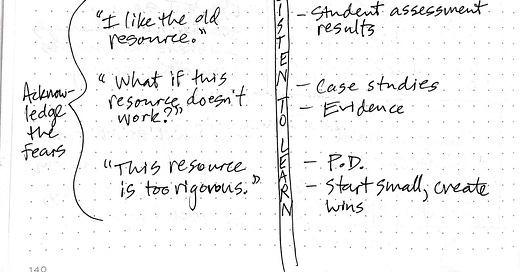 Acknow-
ledge
the
fears
"I like the old
resource."
"What if this
resource doesn't
work??"
"This resource
is too rigorous."
ISTEN TO LEARN
- Student assessment
results
- Case studies
- Evidence
- P.D.
- Start small, create
wins
140